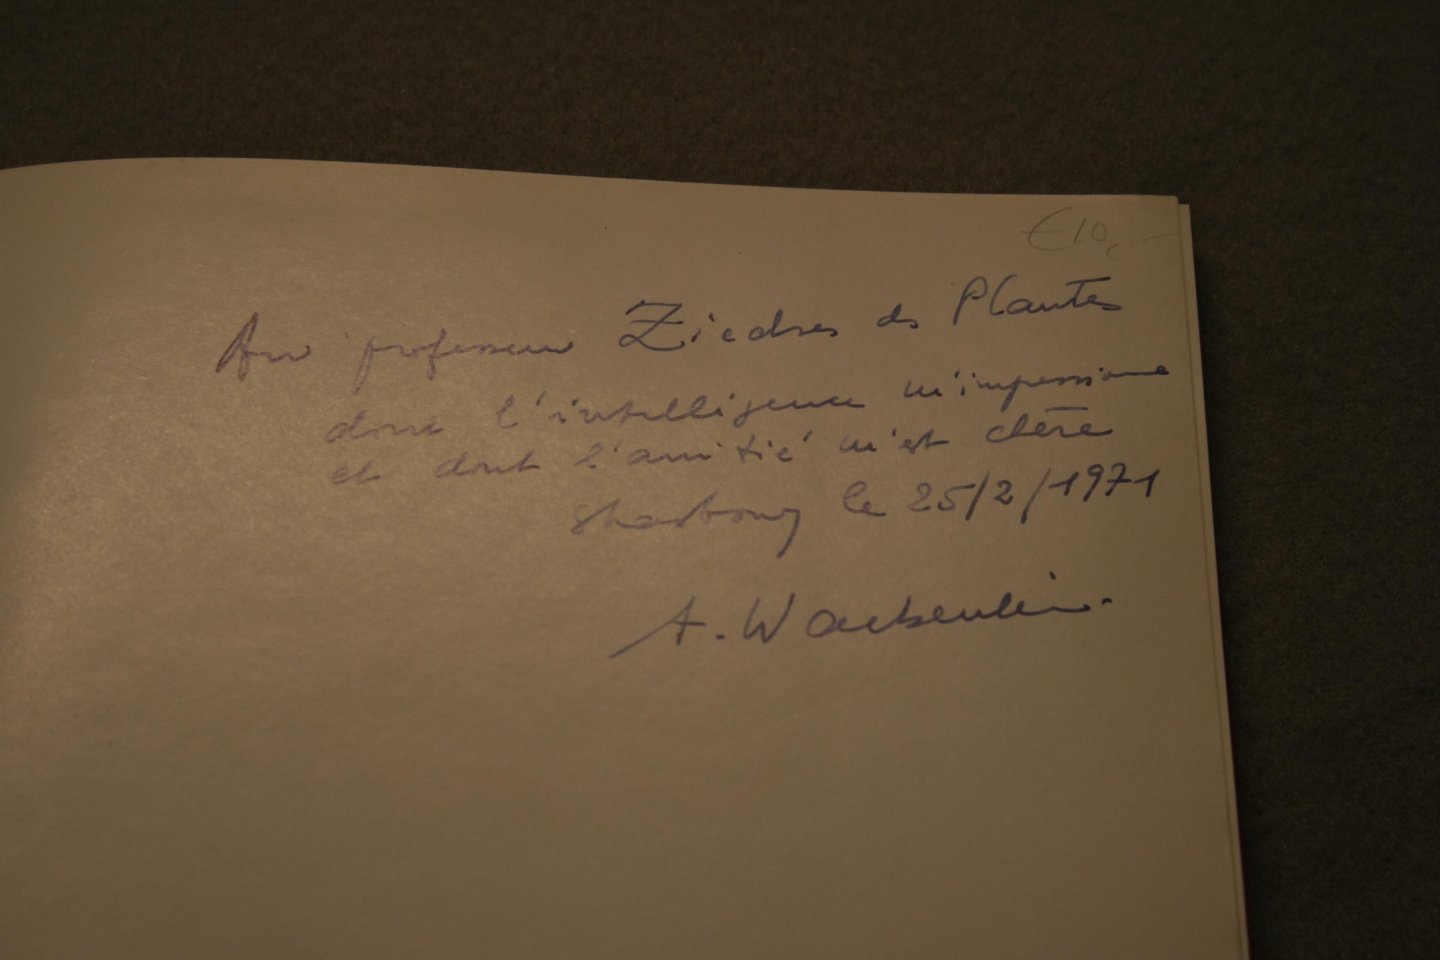 €10,-
Au professeur Ziedses des Plantes
dont l'intelligence m'impressionne
et dont l'amitié m'est chère
Strasbourg le 25/2/1971
A. Wackenheim.